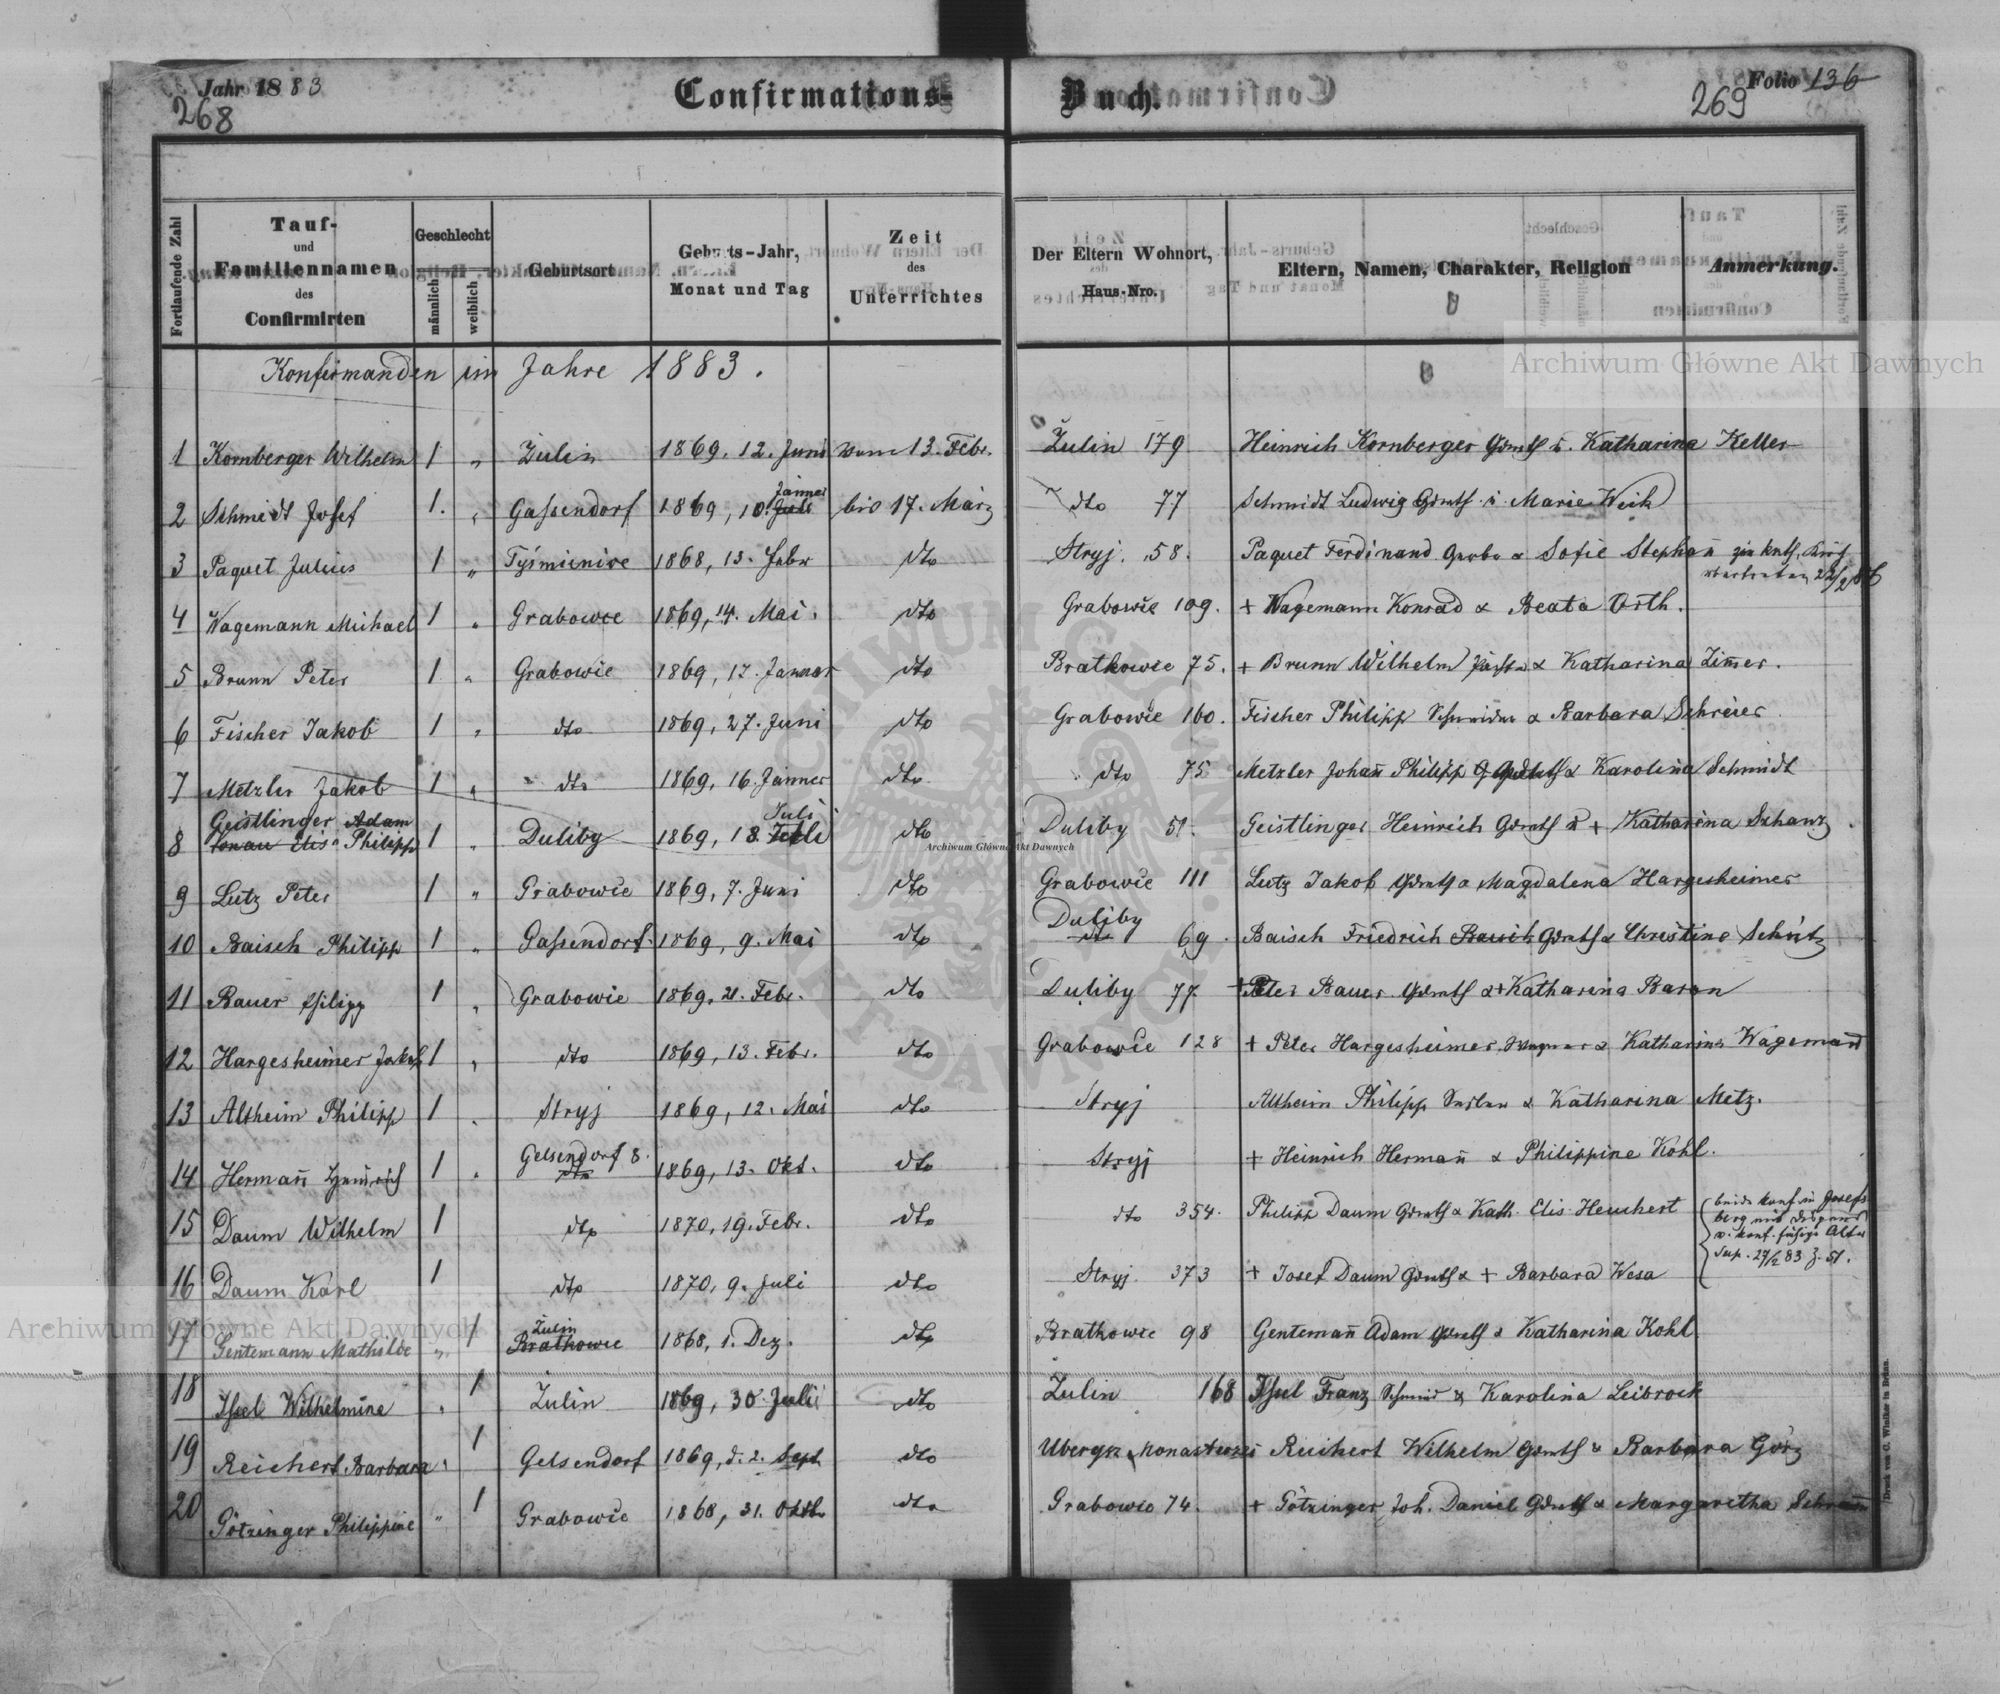 Jahr 1883
268
Confirmations-
Buch.
Folio 136
269
Fortlaufende Zahl
Tauf- und Familiennamen des Confirmirten
Geschlecht
männlich
weiblich
Geburtsort
Geburts-Jahr, Monat und Tag
Zeit des Unterrichtes
Der Eltern Wohnort, Haus-Nro.
Eltern, Namen, Charakter, Religion
Anmerkung.
Konfirmanden im Jahre 1883.
1 Kornberger Wilhelm 1 " Żulin 1869. 12. Juni vom 13. Febr. Żulin 179 Heinrich Kornberger Grundb u. Katharina Keller
2 Schmidt Josef 1. " Gaßendorf 1869, 10. Jänner Juli bis 17. März dto 77 Schmidt Ludwig Grundb. u. Marie Weik
3 Paquet Julius 1 " Tyśmienice 1868, 13. Febr dto Stryj. 58. Paquet Ferdinand & Sofie Stephan̄ zur kath. Kirche
übertreten 22/2 86
4 Wagemann Michael 1 " Grabowce 1869, 14. Mai. dto Grabowce 109. + Wagemann Konrad & Beata Orth.
5 Brunn Peter 1 " Grabowce 1869, 17. Januar dto Bratkowce 75. + Brunn Wilhelm & Katharina Zim̄er.
6 Fischer Jakob 1 " dto 1869, 27. Juni dto Grabowce 160. Fischer Philipp Schneider & Barbara Schreier
7 Metzler Jakob 1 " dto 1869, 16. Jänner dto dto 75 Metzler Johan̄ Philipp Grundb & Karolina Schmidt
8 Geistlinger Adam
Elis Philipp 1 " Duliby 1869, 18. Juli dto Duliby 51. Geistlinger Heinrich Grundb u + Katharina Schanz
9 Lutz Peter 1 " Grabowce 1869, 7. Juni dto Grabowce 111 Lutz Jakob Grundb & Magdalena Hargesheimer
10 Baisch Philipp 1 " Gaßendorf. 1869, 9. Mai dto Duliby dto 69. Baisch Friedrich Baisch Grundb & Christine Schütz
11 Bauer Philipp 1 " Grabowce 1869, 21. Febr. dto Duliby 77. + Peter Bauer Grundb & + Katharina Baron
12 Hargesheimer Jakob 1 " dto 1869, 13. Febr. dto Grabowce 128 + Peter Hargesheimer, Wagner & Katharina Wageman̄
13 Altheim Philipp 1 " Stryj 1869, 12. Mai dto Stryj Altheim Philipp & Katharina Metz.
14 Herman̄ Heinrich 1 " Gelsendorf 8. dto 1869, 13. Okt. dto Stryj + Heinrich Herman̄ & Philippine Kohl.
15 Daum Wilhelm 1 dto 1870, 19. Febr. dto dto 354. Philipp Daum Grundb & Kath. Elis. Heuchert
beide konf. in Josefs-
berg mit Dispens
v. konf. fähige Alter
Sup. 27/2 83 Z. 51.
16 Daum Karl 1 dto 1870, 9. Juli dto Stryj. 373 + Josef Daum Grundb & + Barbara Wesa
17 Gentemann Mathilde " 1 Żulin Bratkowce 1868, 1. Dez. dto Bratkowce 98 Genteman̄ Adam Grundb & Katharina Kohl
18 Issel Wilhelmine " 1 Żulin 1869, 30. Juli dto Żulin 168 Issel Franz Schmid & Karolina Leibrock
19 Reichert Barbara " 1 Gelsendorf 1869, d. 2. Sept dto Ubergn Monasterzec Reichert Wilhelm Grundb & Barbara Götz
20 Götzinger Philippine " 1 Grabowce 1868, 31. Oktb. dto Grabowce 74. + Götzinger Joh. Daniel Grundb & Margaretha Schram̄
Druck von C. Winiker in Brünn.
Archiwum Główne Akt Dawnych